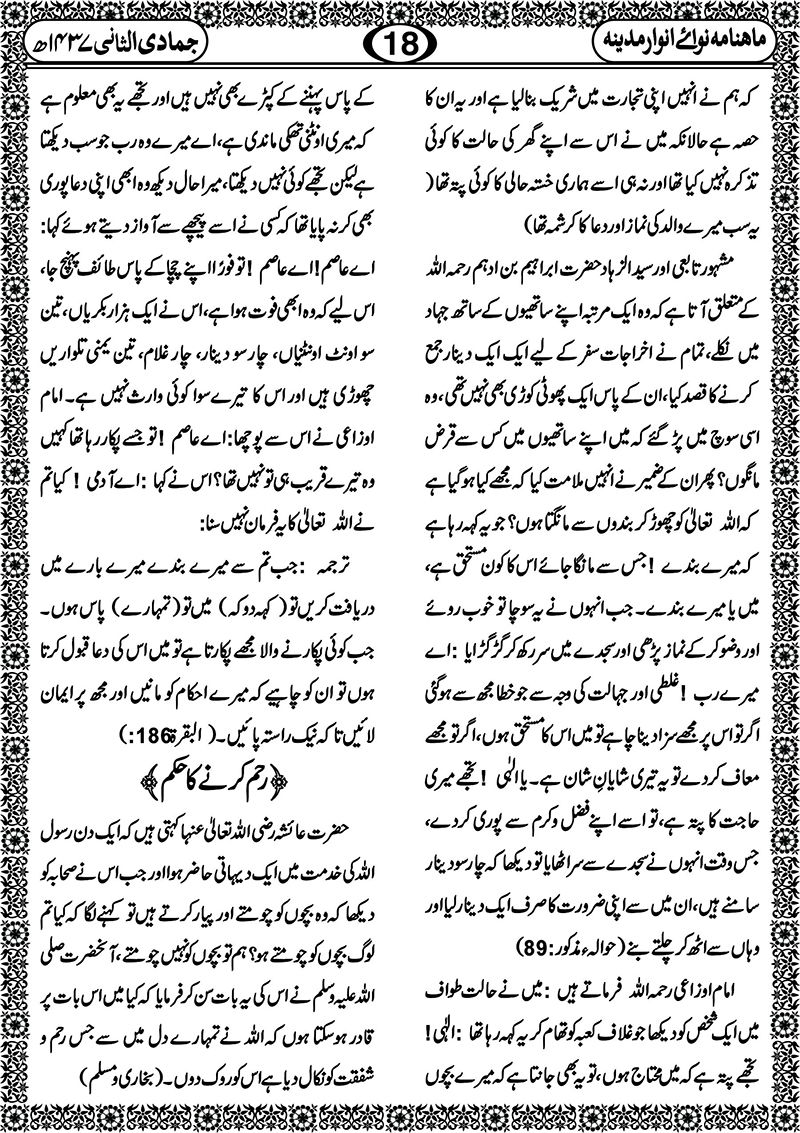 ماہنامہ نوائے انوار مدینہ
18
جمادی الثانی ۱۴۳۷ھ
کہ ہم نے انہیں اپنی تجارت میں شریک بنالیا ہے اور یہ ان کا
حصہ ہے حالانکہ میں نے اس سے اپنے گھر کی حالت کا کوئی
تذکرہ نہیں کیا تھا اور نہ ہی اسے ہماری خستہ حالی کا کوئی پتہ تھا (
یہ سب میرے والد کی نماز اور دعا کا کرشمہ تھا)
مشہور تابعی اور سید الزہاد حضرت ابراہیم بن ادہم رحمہ اللہ
کے متعلق آتا ہے کہ وہ ایک مرتبہ اپنے ساتھیوں کے ساتھ جہاد
میں نکلے، تمام نے اخراجات سفر کے لیے ایک ایک دینار جمع
کرنے کا قصد کیا، ان کے پاس ایک پھوٹی کوڑی بھی نہیں تھی، وہ
اسی سوچ میں پڑ گئے کہ میں اپنے ساتھیوں میں کس سے قرض
مانگوں؟ پھر ان کے ضمیر نے انہیں ملامت کیا کہ مجھے کیا ہو گیا ہے
کہ اللہ تعالیٰ کو چھوڑ کر بندوں سے مانگتا ہوں؟ جو یہ کہہ رہا ہے
کہ میرے بندے ! جس سے مانگا جائے اس کا کون مستحق ہے،
میں یا میرے بندے۔ جب انہوں نے یہ سوچا تو خوب روئے
اور وضو کر کے نماز پڑھی اور سجدے میں سر رکھ کر گڑگڑایا : اے
میرے رب ! غلطی اور جہالت کی وجہ سے جو خطا مجھ سے ہو گئی
اگر تو اس پر مجھے سزا دینا چاہے تو میں اس کا مستحق ہوں، اگر تو مجھے
معاف کر دے تو یہ تیری شایانِ شان ہے۔ یا الٰہی ! تجھے میری
حاجت کا پتہ ہے، تو اسے اپنے فضل و کرم سے پوری کر دے،
جس وقت انہوں نے سجدے سے سر اٹھایا تو دیکھا کہ چار سو دینار
سامنے ہیں، ان میں سے اپنی ضرورت کا صرف ایک دینار لیا اور
وہاں سے اٹھ کر چلتے بنے (حوالہء مذکور :89)
امام اوزاعی رحمہ اللہ فرماتے ہیں : میں نے حالت طواف
میں ایک شخص کو دیکھا جو غلاف کعبہ کو تھام کر یہ کہہ رہا تھا : الٰہی !
تجھے پتہ ہے کہ میں محتاج ہوں، تو یہ بھی جانتا ہے کہ میرے بچوں
کے پاس پہننے کے کپڑے بھی نہیں ہیں اور تجھے یہ بھی معلوم ہے
کہ میری اونٹنی تھکی ماندی ہے، اے میرے وہ رب جو سب دیکھتا
ہے لیکن تجھے کوئی نہیں دیکھتا، میرا حال دیکھ وہ ابھی اپنی دعا پوری
بھی کر نہ پایا تھا کہ کسی نے اسے پیچھے سے آواز دیتے ہوئے کہا :
اے عاصم! اے عاصم ! تو فورًا اپنے چچا کے پاس طائف پہنچ جا،
اس لیے کہ وہ ابھی فوت ہوا ہے، اس نے ایک ہزار بکریاں، تین
سو اونٹ اونٹنیاں، چار سو دینار، چار غلام، تین یمنی تلواریں
چھوڑی ہیں اور اس کا تیرے سوا کوئی وارث نہیں ہے۔ امام
اوزاعی نے اس سے پوچھا : اے عاصم ! تو جسے پکار رہا تھا کہیں
وہ تیرے قریب ہی تو نہیں تھا؟ اس نے کہا : اے آدمی ! کیا تم
نے اللہ تعالیٰ کا یہ فرمان نہیں سنا :
ترجمہ : جب تم سے میرے بندے میرے بارے میں
دریافت کریں تو ( کہہ دو کہ ) میں تو (تمہارے ) پاس ہوں۔
جب کوئی پکارنے والا مجھے پکارتا ہے تو میں اس کی دعا قبول کرتا
ہوں تو ان کو چاہیے کہ میرے احکام کو مانیں اور مجھ پر ایمان
لائیں تاکہ نیک راستہ پائیں۔ ( البقرۃ 186:)
﴿ رحم کرنے کا حکم ﴾
حضرت عائشہ رضی اللہ تعالیٰ عنہا کہتی ہیں کہ ایک دن رسول
اللہ کی خدمت میں ایک دیہاتی حاضر ہوا اور جب اس نے صحابہ کو
دیکھا کہ وہ بچوں کو چومتے اور پیار کرتے ہیں تو کہنے لگا کہ کیا تم
لوگ بچوں کو چومتے ہو؟ ہم تو بچوں کو نہیں چومتے، آنحضرت صلی
اللہ علیہ وسلم نے اس کی یہ بات سن کر فرمایا کہ کیا میں اس بات پر
قادر ہو سکتا ہوں کہ اللہ نے تمہارے دل میں سے جس رحم و
شفقت کو نکال دیا ہے اس کو روک دوں۔ ( بخاری و مسلم )